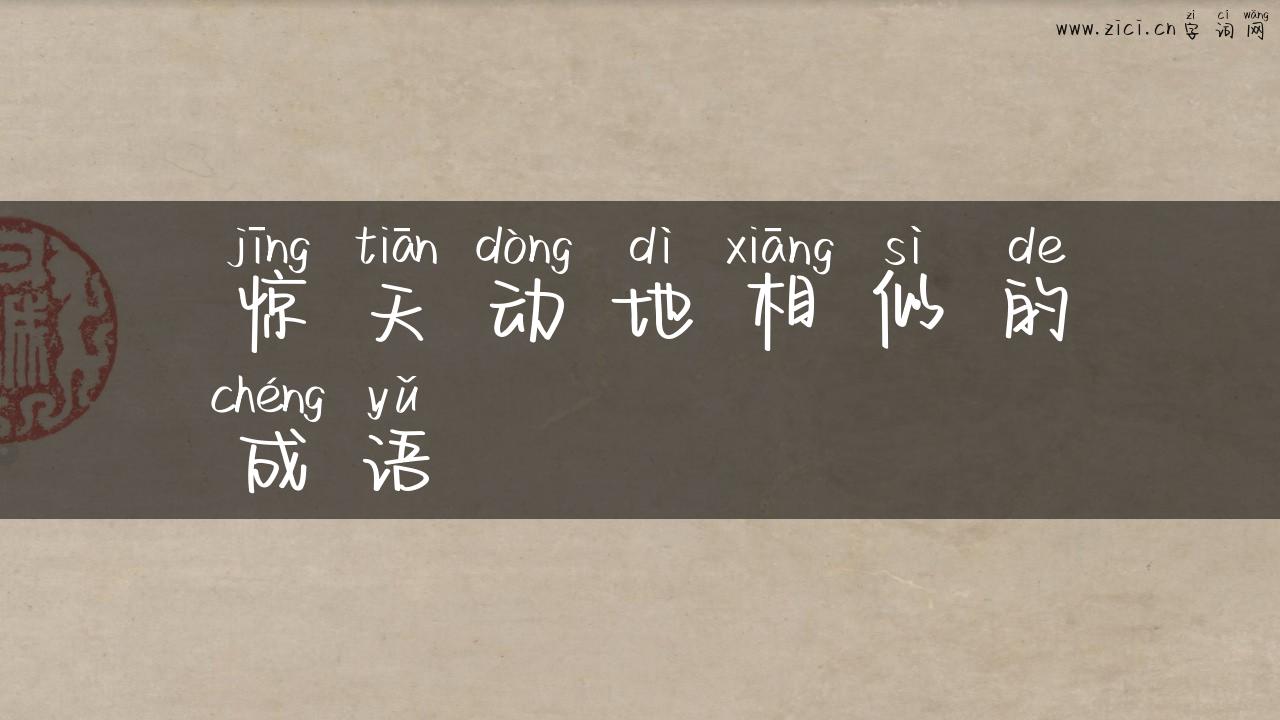 zì cí wǎng
www.zici.cn 字词网
jīng tiān dòng dì xiāng sì de
惊天动地相似的
chéng yǔ
成语